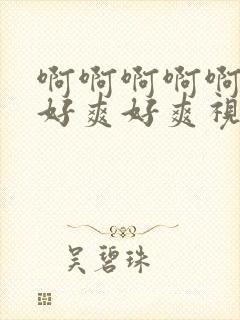 啊啊啊啊啊
好爽好爽视
吴碧珠